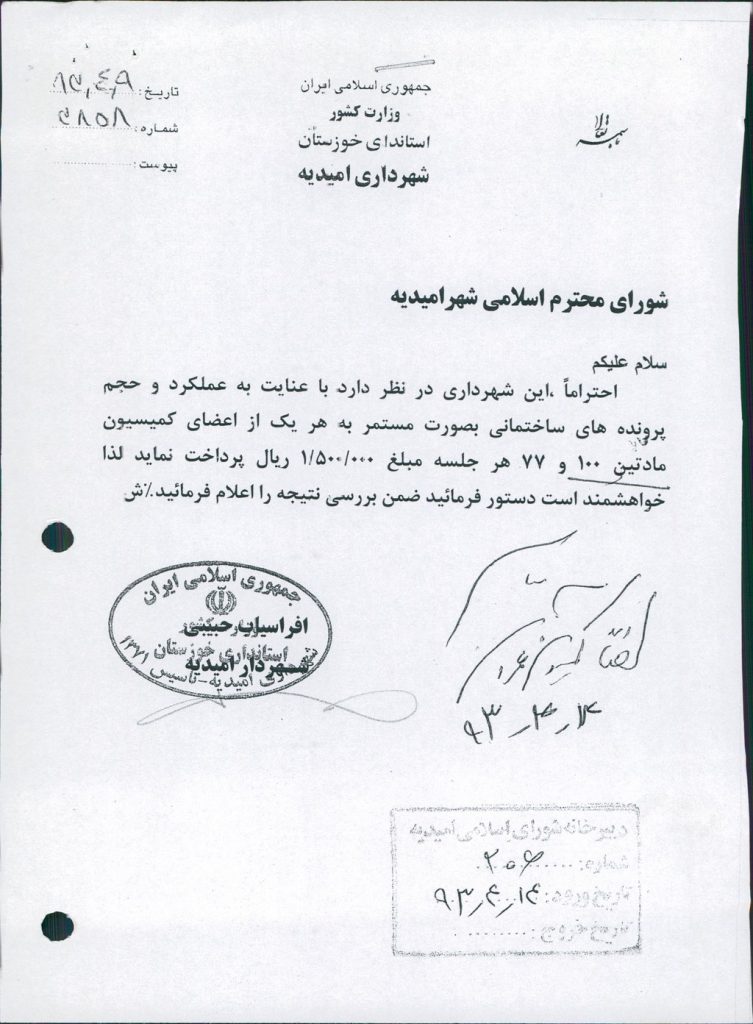 باسمه تعالی
جمهوری اسلامی ایران
وزارت کشور
استاندای خوزستان
شهرداری امیدیه
تاریخ: ۹۳٫۴٫۹
شماره: ۲۸۵۸
پیوست:
شورای محترم اسلامی شهرامیدیه
سلام علیکم
احتراماً ،این شهرداری در نظر دارد با عنایت به عملکرد و حجم
پرونده های ساختمانی بصورت مستمر به هر یک از اعضای کمیسیون
مادتین ۱۰۰ و ۷۷ هر جلسه مبلغ ۱/۵۰۰/۰۰۰ ریال پرداخت نماید لذا
خواهشمند است دستور فرمائید ضمن بررسی نتیجه را اعلام فرمائید.٪ش
جمهوری اسلامی ایران
افراسیاب حبیبی
استانداری خوزستان
شهردار امیدیه
امیدیه-تاسیس ۱۳۷۱
۹۳٫۴٫۱۴
دبیرخانه شورای اسلامی امیدیه
شماره: ۲۰۶
تاریخ ورود: ۹۳٫۴٫۱۴
تاریخ خروج: